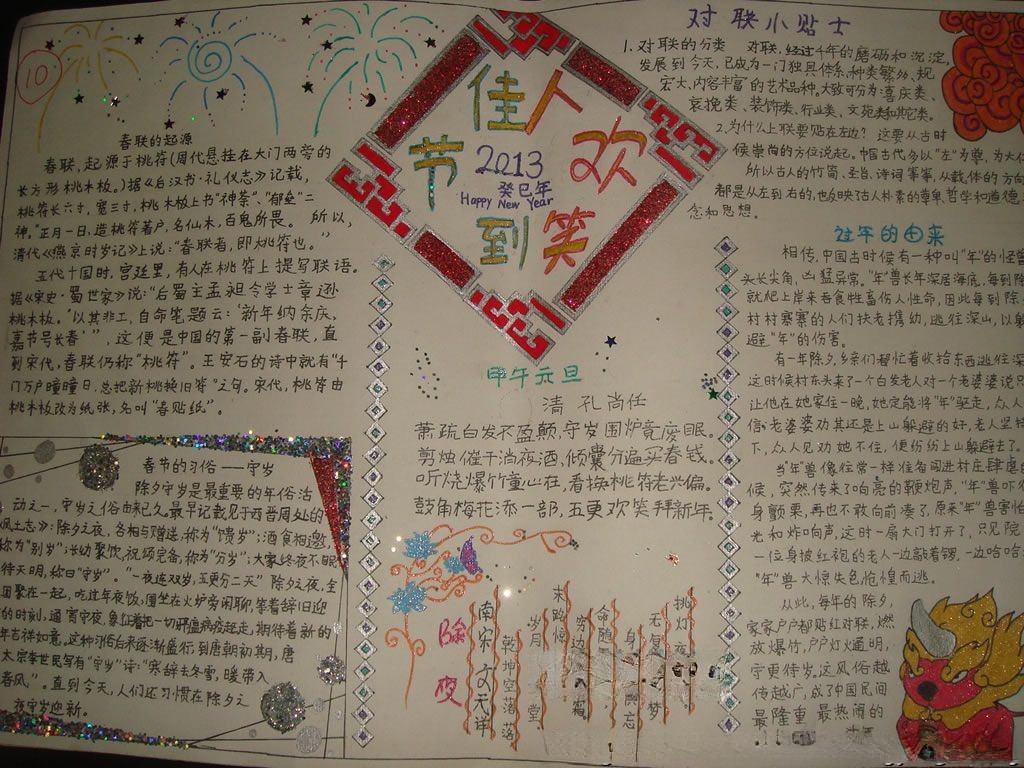 10
春联的起源
春联,起源于桃符(周代悬挂在大门两旁的
长方形桃木板。)据《后汉书·礼仪志》记载,
桃符长六寸,宽三寸,桃木板上书"神荼"、"郁垒"二
神。"正月一日,造桃符著户,名仙木,百鬼所畏。 所以,
清代《燕京时岁记》上说:"春联者,即桃符也。"
五代十国时,宫廷里,有人在桃符上提写联语。
据《宋史·蜀世家》说:"后蜀主孟昶令学士章逊
桃木板。'以其非工,自命笔题云:'新年纳余庆,
嘉节号长春'",这便是中国的第一副春联,直
到宋代,春联仍称"桃符"。王安石的诗中就有"千
门万户曈曈日,总把新桃换旧符"之句。宋代,桃符由
桃木板改为纸张,名叫"春贴纸"。
春节的习俗——守岁
除夕守岁是最重要的年俗活
动之一,守岁之俗由来已久。最早记载见于西晋周处的
风土志》:除夕之夜,各相与赠送,称为"馈岁";酒食相邀,
称为"别岁";长幼聚饮,祝颂完备,称为"分岁";大家终夜不眠,
待天明,称曰"守岁"。"一夜连双岁,五更分二天"除夕之夜,全
团聚在一起,吃过年夜饭,围坐在火炉旁闲聊,等着辞旧迎
的时刻,通宵守夜,象征着把一切邪瘟病疫赶走,期待着新的
年吉祥如意。这种习俗后来逐渐盛行,到唐朝初期,唐
太宗李世民写有"守岁"诗:"寒辞去冬雪,暖带入
春风"。直到今天,人们还习惯在除夕之
夜守岁迎新。
佳人
节 欢
2013
癸巳年
Happy New Year
到笑
甲午元旦
清 孔尚任
萧疏白发不盈颠,守岁围炉竟废眠。
剪烛催干消夜酒,倾囊分遍买春钱。
听烧爆竹童心在,看换桃符老兴偏。
鼓角梅花添一部,五更欢笑拜新年。
除夜
南宋 文天祥
乾坤空落落
岁月 堂
末路惊
穷边 霜
命随
身 忘
无复 梦
挑灯夜
对联小贴士
1. 对联的分类 对联,经过千年的磨砺和沉淀,
发展到今天,已成为一门独具体系,种类繁多、规
宏大、内容丰富的艺术品种,大致可分为:喜庆类、
哀挽类、装饰类、行业类、文苑类和其它类。
2.为什么上联要贴在右边? 这要从古时
候崇尚的方位说起。中国古代多以"左"为尊,为大位
所以古人的竹简、圣旨、诗词等等,从载体的方向
都是从左到右的,也反映古人朴素的尊卑、哲学和道德
念和思想。
过年的由来
相传,中国古时候有一种叫"年"的怪兽
头长尖角,凶猛异常。"年"兽长年深居海底,每到除
就爬上岸来吞食牲畜伤人性命,因此每到除
村村寨寨的人们扶老携幼,逃往深山,以躲
避"年"的伤害。
有一年除夕,乡亲们都忙着收拾东西逃往深
这时候村东头来了一个白发老人对一个老婆婆说只
让他在她家住一晚,她定能将"年"驱走,众人
信,老婆婆劝其还是上山躲避的好,老人坚持
下,众人见劝她不住,便纷纷上山躲避去了。
当年兽像往常一样准备闯进村庄肆虐的
候,突然传来了响亮的鞭炮声,"年"兽吓
身颤栗,再也不敢向前凑了,原来"年"兽害怕
光和炸响声,这时一扇大门打开了,只见院
一位身披红袍的老人一边敲着锣,一边哈哈
"年"兽大惊失色,怆惶而逃。
从此,每年的除夕,
家家户户都贴红对联,燃
放爆竹,户户灯火通明,
守更待岁。这风俗越
传越广,成了中国民间
最隆重 最热闹的